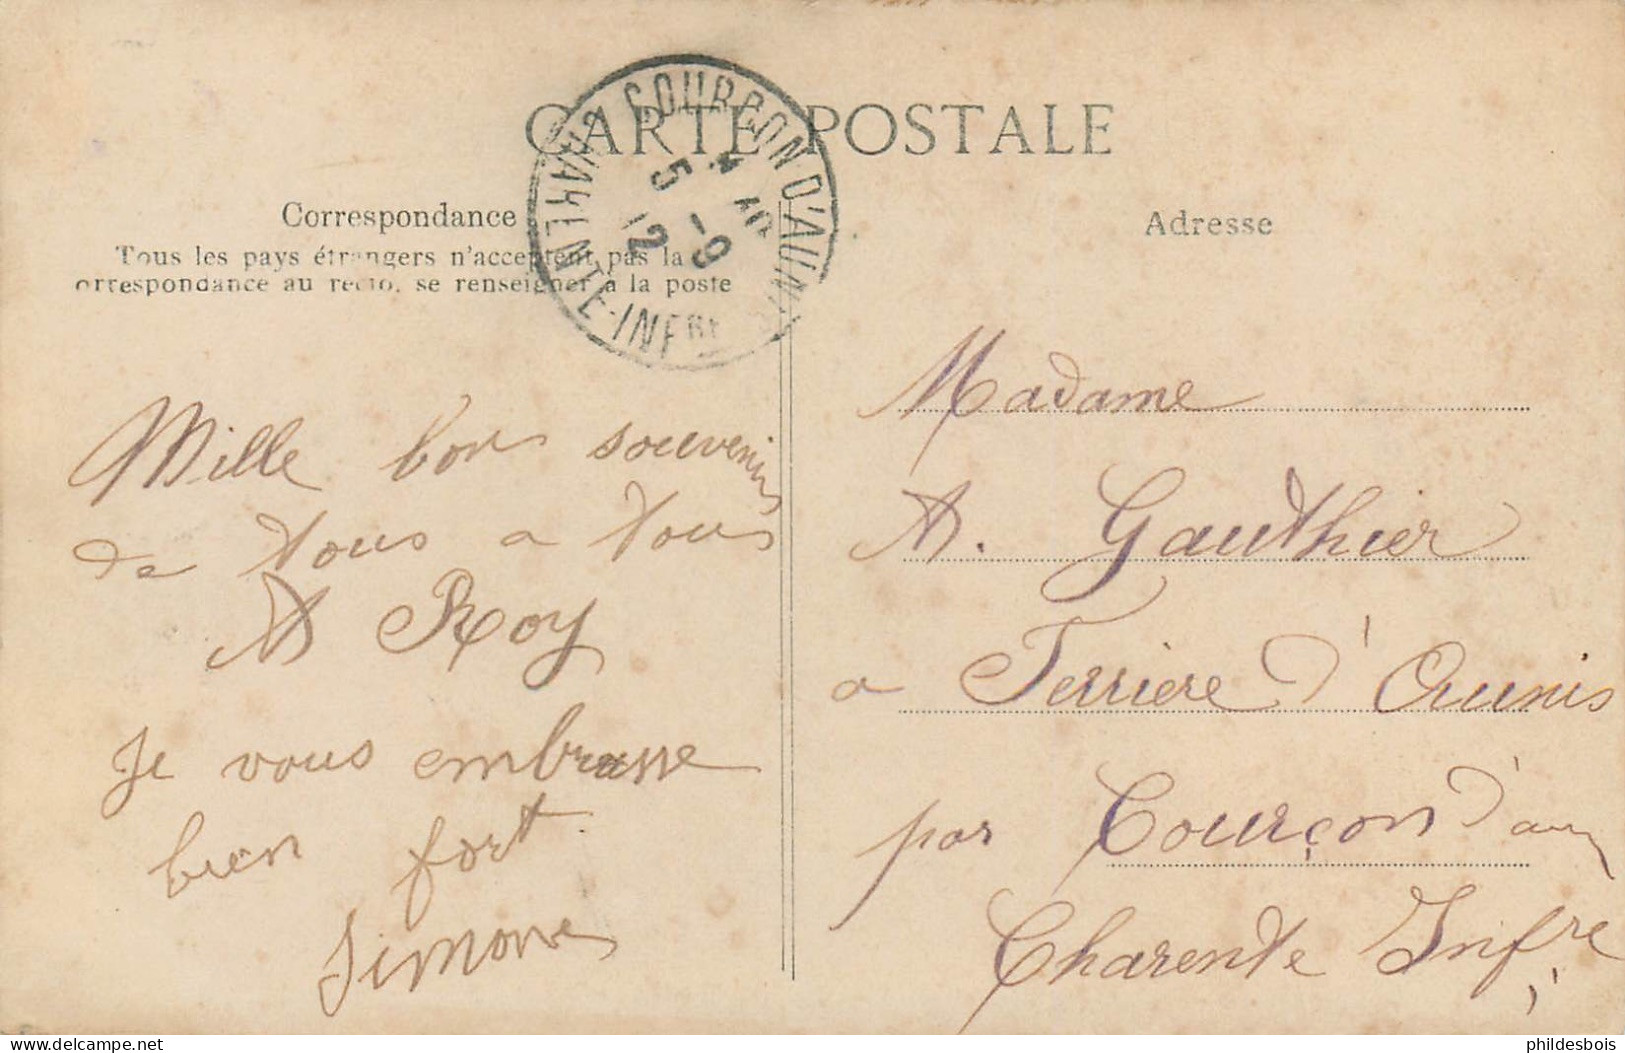 CARTE POSTALE
Correspondance
Tous les pays étrangers n'acceptent pas la
orrespondance au recto, se renseigner à la poste
Adresse
COURÇON D'AUNIS
5 - 9
12
CHARENTE-INFRE
Mille bons souvenirs
de tous a tous
A Roy
Je vous embrasse
bien fort
Simone
Madame
A. Gauthier
a Ferriere d'Aunis
par Courçon d'aun
Charente Infre
delcampe.net
phildesbois